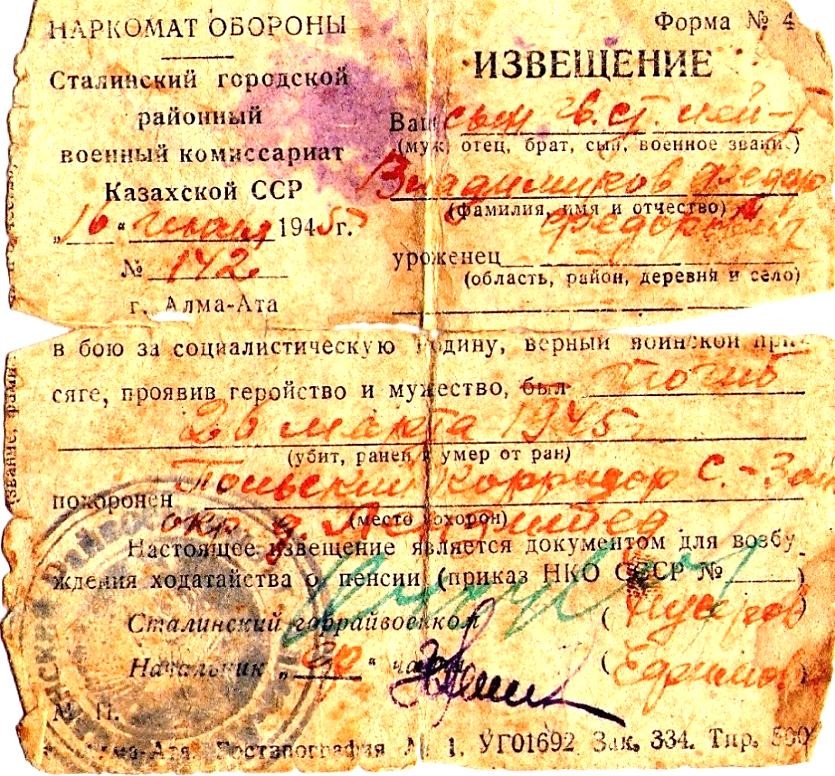 НАРКОМАТ ОБОРОНЫ
Сталинский городской
районный
военный комиссариат
Казахской ССР
„16“ 1945г.
№ 142
г. Алма-Ата
Форма № 4
ИЗВЕЩЕНИЕ
Ваш сын гв. ст. лей-т
(муж, отец, брат, сын, военное звание)
Владимиров Федор
(фамилия, имя и отчество)
Федорович
уроженец
(область, район, деревня и село)
в бою за социалистическую Родину, верный воинской при-
сяге, проявив геройство и мужество, был погиб
26 марта 1945г.
(убит, ранен и умер от ран)
похоронен Польский корридор С.-Зап
окр. д.
(место похорон)
Настоящее извещение является документом для возбу-
ждения ходатайства о пенсии (приказ НКО СССР № )
Сталинский горрайвоенком
Начальник „ “ части (Ефимов)
М. П.
Алма-Ата, Гостипография № 1. УГ01692 Зак. 334. Тир. 500
звание, фами